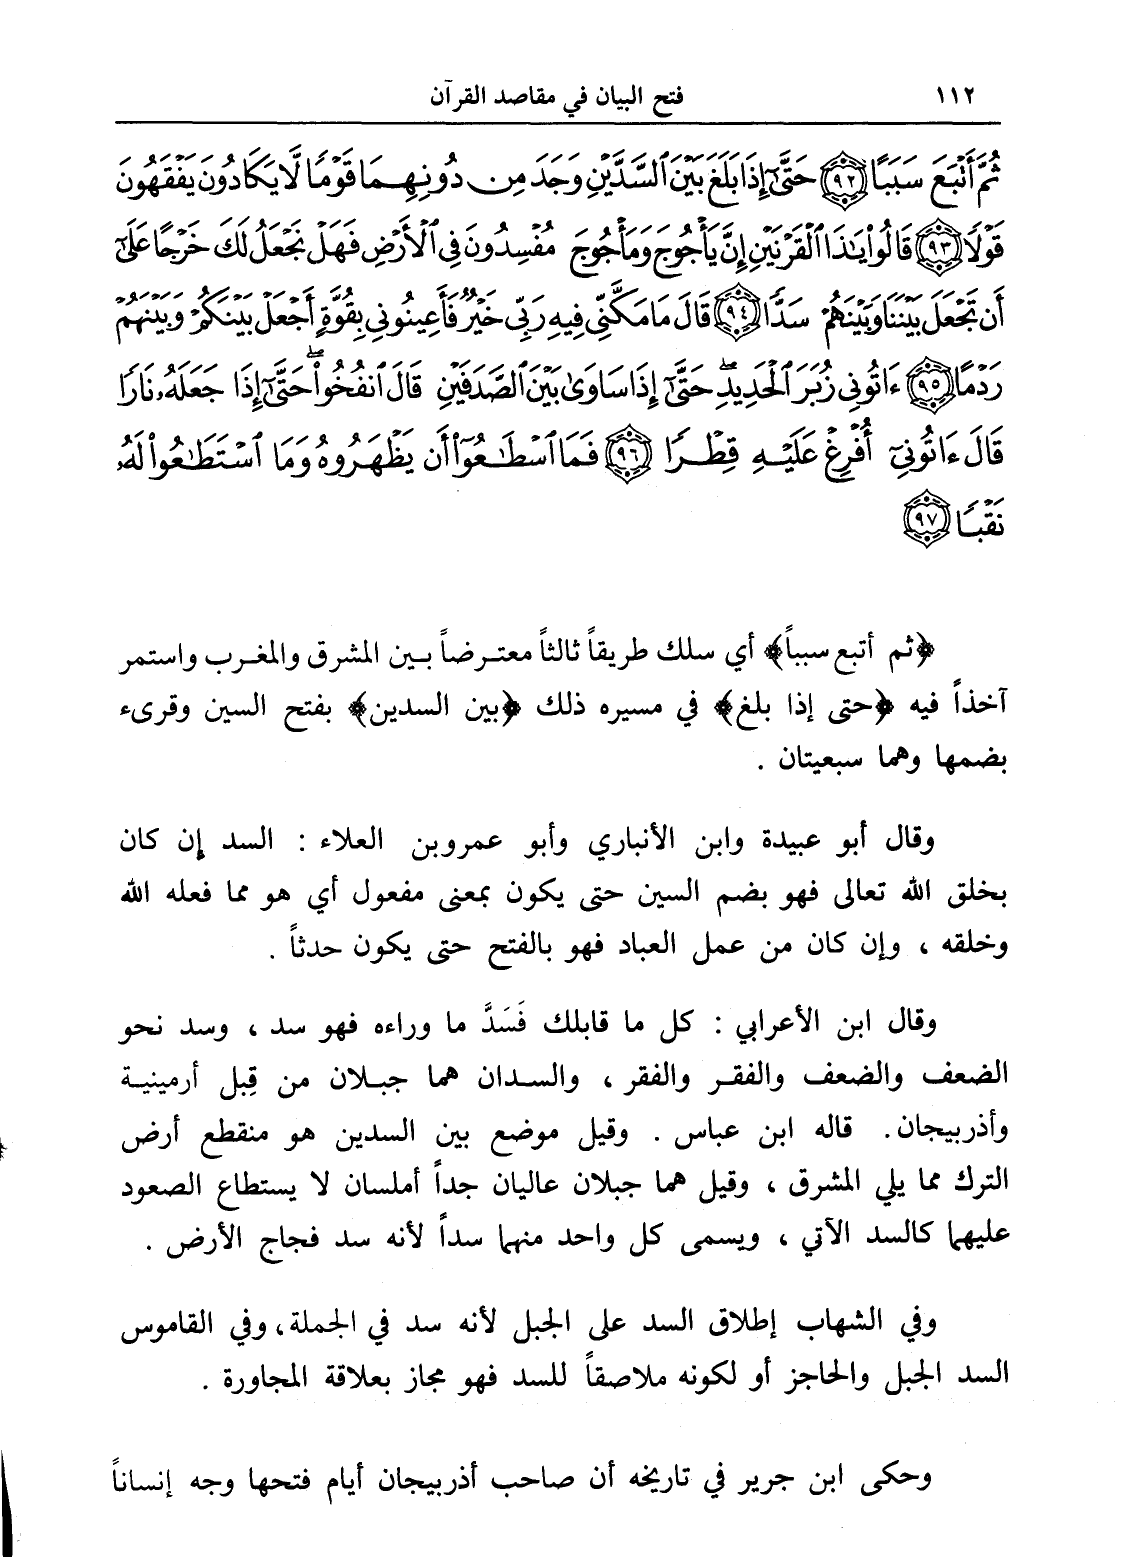 ١١٢ فتح البيان في مقاصد القرآن
ثُمَّ أَتْبَعَ سَبَبًا ﴿٩٢﴾ حَتَّىٰٓ إِذَا بَلَغَ بَيْنَ ٱلسَّدَّيْنِ وَجَدَ مِن دُونِهِمَا قَوْمًا لَّا يَكَادُونَ يَفْقَهُونَ
قَوْلًا ﴿٩٣﴾ قَالُوا۟ يَٰذَا ٱلْقَرْنَيْنِ إِنَّ يَأْجُوجَ وَمَأْجُوجَ مُفْسِدُونَ فِى ٱلْأَرْضِ فَهَلْ نَجْعَلُ لَكَ خَرْجًا عَلَىٰٓ
أَن تَجْعَلَ بَيْنَنَا وَبَيْنَهُمْ سَدًّا ﴿٩٤﴾ قَالَ مَا مَكَّنِّى فِيهِ رَبِّى خَيْرٌ فَأَعِينُونِى بِقُوَّةٍ أَجْعَلْ بَيْنَكُمْ وَبَيْنَهُمْ
رَدْمًا ﴿٩٥﴾ ءَاتُونِى زُبَرَ ٱلْحَدِيدِ ۖ حَتَّىٰٓ إِذَا سَاوَىٰ بَيْنَ ٱلصَّدَفَيْنِ قَالَ ٱنفُخُوا۟ ۖ حَتَّىٰٓ إِذَا جَعَلَهُۥ نَارًا
قَالَ ءَاتُونِىٓ أُفْرِغْ عَلَيْهِ قِطْرًا ﴿٩٦﴾ فَمَا ٱسْطَٰعُوٓا۟ أَن يَظْهَرُوهُ وَمَا ٱسْتَطَٰعُوا۟ لَهُۥ
نَقْبًا ﴿٩٧﴾
﴿ثم أتبع سبباً﴾ أي سلك طريقاً ثالثاً معترضاً بين المشرق والمغرب واستمر
آخذاً فيه ﴿حتى إذا بلغ﴾ في مسيره ذلك ﴿بين السدين﴾ بفتح السين وقرىء
بضمها وهما سبعيتان .
وقال أبو عبيدة وابن الأنباري وأبو عمروبن العلاء : السد إن كان
بخلق الله تعالى فهو بضم السين حتى يكون بمعنى مفعول أي هو مما فعله الله
وخلقه ، وإن كان من عمل العباد فهو بالفتح حتى يكون حدثاً .
وقال ابن الأعرابي : كل ما قابلك فَسَدَّ ما وراءه فهو سد ، وسد نحو
الضعف والضعف والفقر والفقر ، والسدان هما جبلان من قِبل أرمينية
وأذربيجان. قاله ابن عباس . وقيل موضع بين السدين هو منقطع أرض
الترك مما يلي المشرق ، وقيل هما جبلان عاليان جداً أملسان لا يستطاع الصعود
عليهما كالسد الآتي ، ويسمى كل واحد منهما سداً لأنه سد فجاج الأرض .
وفي الشهاب إطلاق السد على الجبل لأنه سد في الجملة، وفي القاموس
السد الجبل والحاجز أو لكونه ملاصقاً للسد فهو مجاز بعلاقة المجاورة .
وحكى ابن جرير في تاريخه أن صاحب أذربيجان أيام فتحها وجه إنساناً